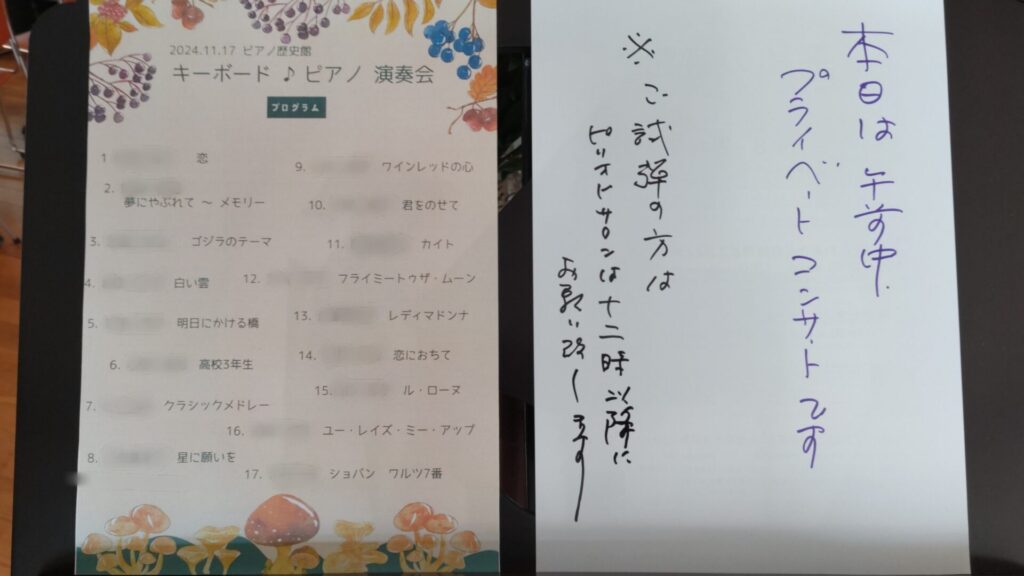 2024.11.17 ピアノ歴史館
キーボード ♪ ピアノ 演奏会
プログラム
1 恋
2.
夢にやぶれて ～ メモリー
3. ゴジラのテーマ
4. 白い雲
5. 明日にかける橋
6. 高校3年生
7. クラシックメドレー
8. 星に願いを
9. ワインレッドの心
10. 君をのせて
11. カイト
12. フライミートゥザ・ムーン
13. レディマドンナ
14. 恋におちて
15. ル・ローヌ
16. ユー・レイズ・ミー・アップ
17. ショパン ワルツ7番
本日は 午前中
プライベートコンサートです
※ ご試弾の方は
ピリオドサロンは十二時以降に
お願い致します